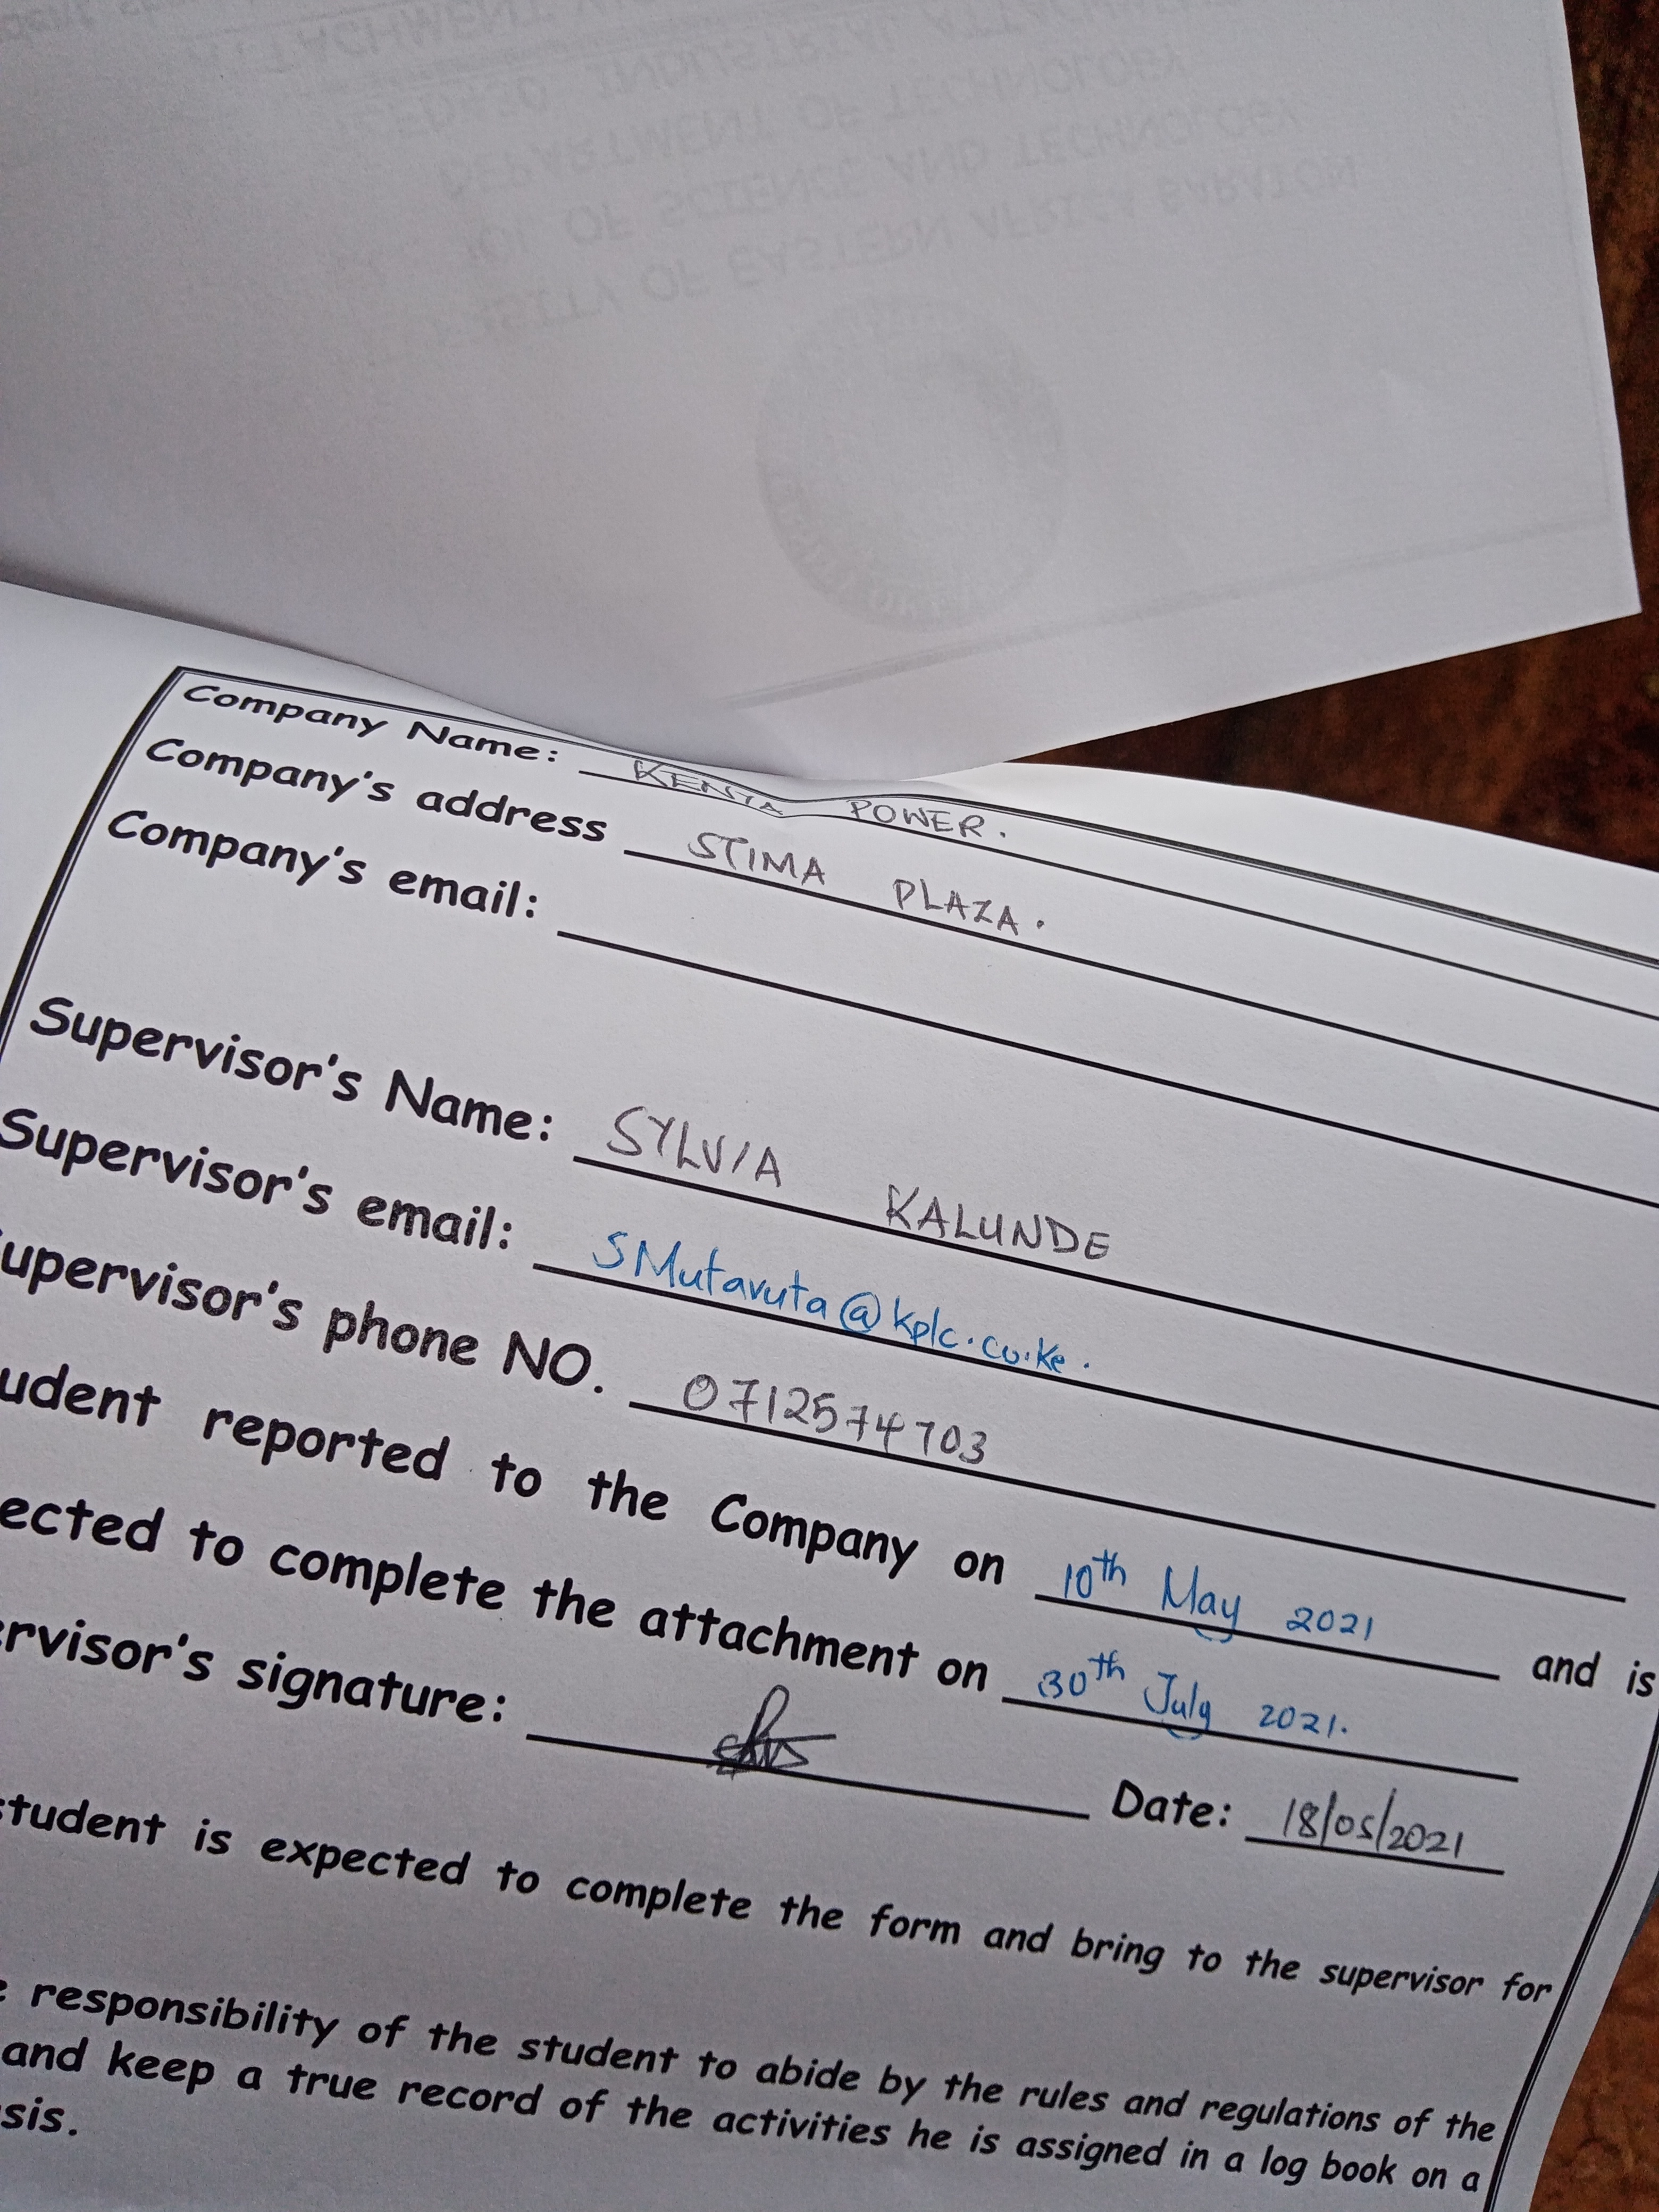 ATTACHMENT
INDUSTRIAL ATTACHMENT
DEPARTMENT OF TECHNOLOGY
OF SCIENCE AND TECHNOLOGY
OF EASTERN AFRICA BARATON
Company Name: KENYA POWER.
Company's address STIMA PLAZA.
Company's email:
Supervisor's Name: SYLVIA KALUNDE
Supervisor's email: SMutavuta@kplc.co.ke.
upervisor's phone NO. 0712574703
udent reported to the Company on 10th May 2021 and is
ected to complete the attachment on 30th July 2021.
ervisor's signature: Date: 18/05/2021
student is expected to complete the form and bring to the supervisor for
responsibility of the student to abide by the rules and regulations of the
and keep a true record of the activities he is assigned in a log book on a
sis.